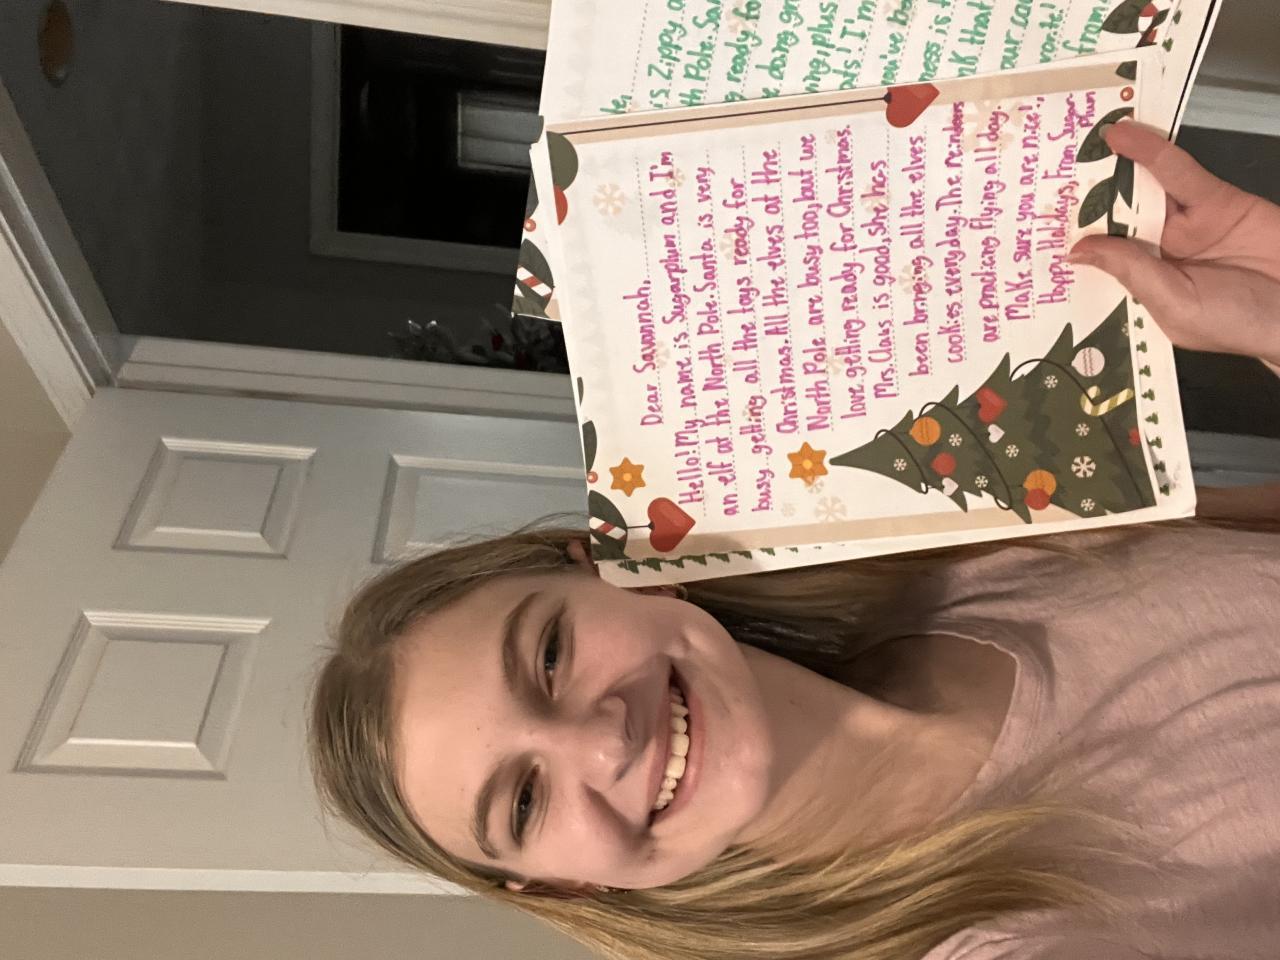 Dear Savannah,
Hello! My name is Sugarplum and I'm
an elf at the North Pole. Santa is very
busy getting all the toys ready for
Christmas. All the elves at the
North Pole are busy too, but we
love getting ready for Christmas.
Mrs. Claus is good, she has
been bringing all the elves
cookies everyday. The reindeers
are practicing flying all day.
Make sure you are nice!
Happy Holidays, From Sugar-
Plum
is Zippy a
th Pole. Sa
ready to
e doing gr
ning, plus
I'm
you've be
ness is t
nk that
our coo
from